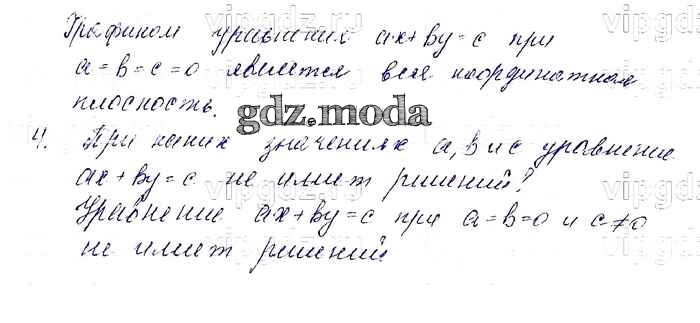 vipgdz.ru
Графиком уравнения ax+by=c при
a=b=c=0 является вся координатная
плоскость.
gdz.moda
4. При каких значениях a, b и c уравнение
ax+by=c не имеет решений?
Уравнение ax+by=c при a=b=0 и c≠0
не имеет решений